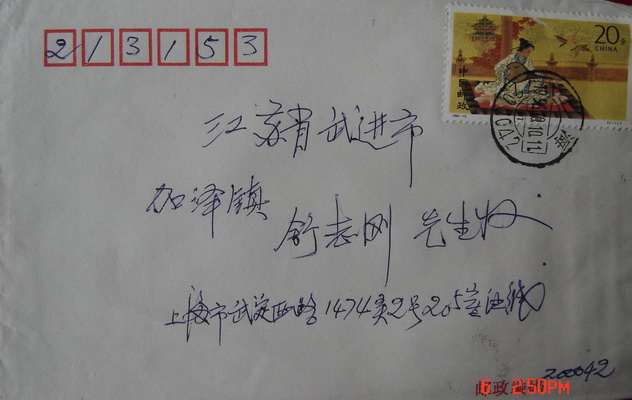 213153
20分
CHINA
中国邮政
江苏省武进市
加泽镇
舒志刚 先生收
上海市武定西路1474弄2号205室
200042
6 2:50PM